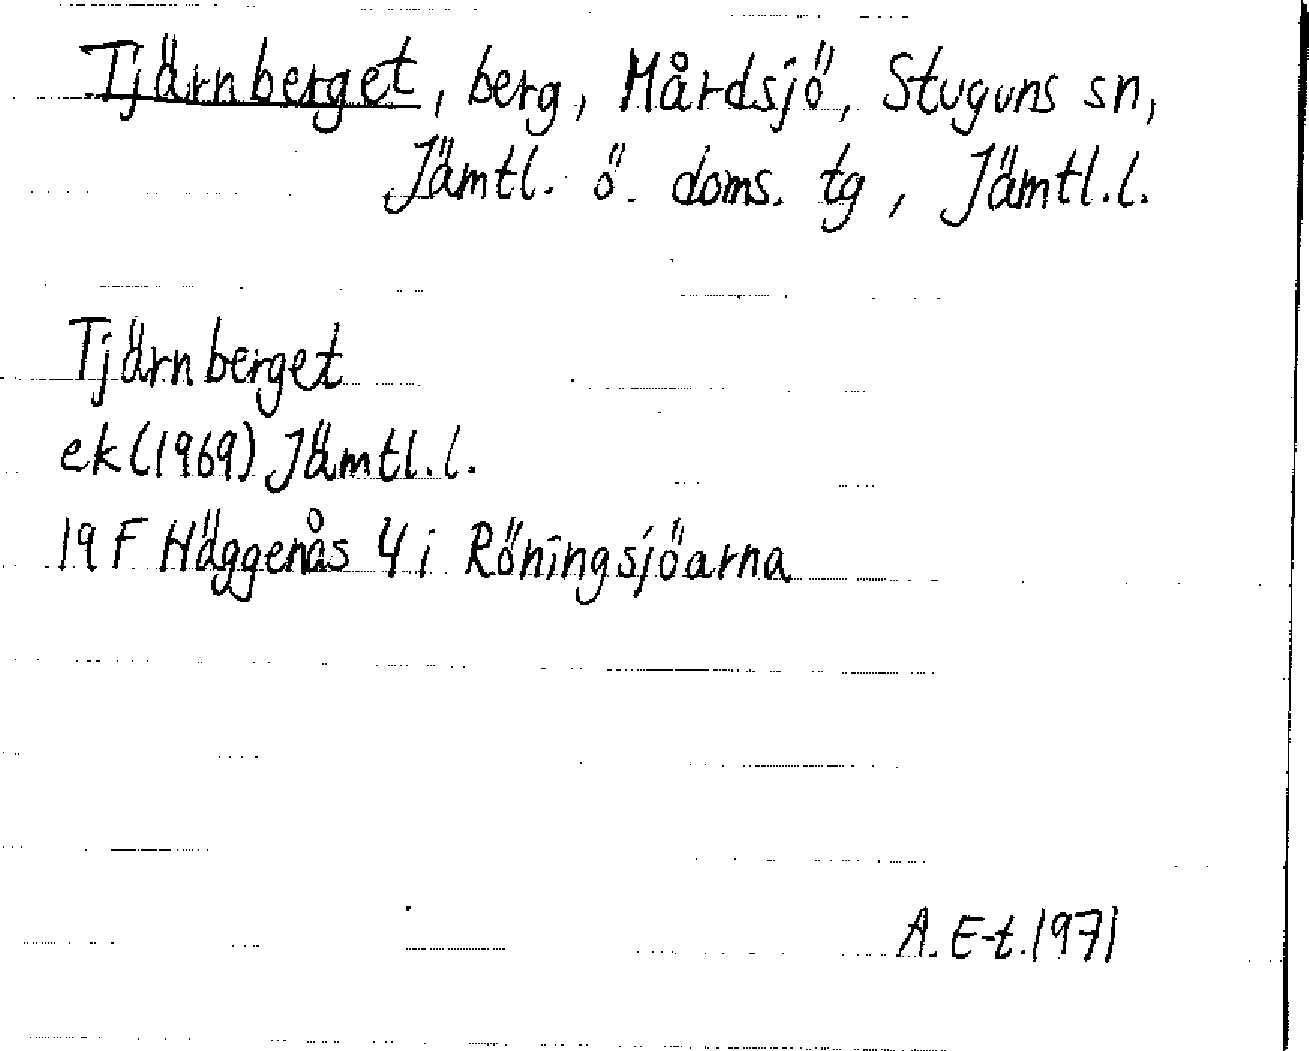 Tjärnberget, berg, Mårdsjö, Stuguns sn,
Jämtl. ö. doms. tg, Jämtl. l.
Tjärnberget
ek (1969) Jämtl. l.
19 F Häggenås 4 i Röningsjöarna
A. E-t. 1971